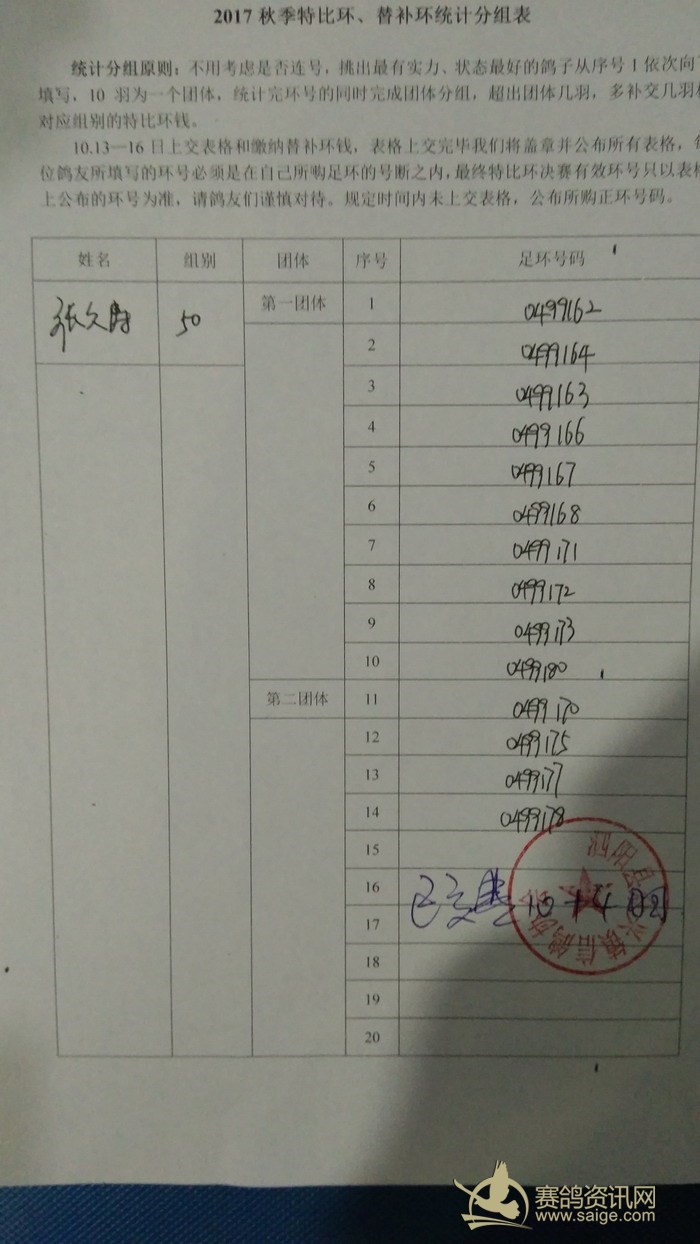 2017 秋季特比环、替补环统计分组表
统计分组原则：不用考虑是否连号，挑出最有实力、状态最好的鸽子从序号 1 依次向下
填写，10 羽为一个团体，统计完环号的同时完成团体分组，超出团体几羽，多补交几羽相
对应组别的特比环钱。
10.13—16 日上交表格和缴纳替补环钱，表格上交完毕我们将盖章并公布所有表格，每
位鸽友所填写的环号必须是在自己所购足环的号断之内，最终特比环决赛有效环号只以表格
上公布的环号为准，请鸽友们谨慎对待。规定时间内未上交表格，公布所购正环号码。
姓名 组别 团体 序号 足环号码
50 第一团体 1 0499162
2 0499164
3 0499163
4 0499166
5 0499167
6 0499168
7 0499171
8 0499172
9 0499173
10 0499180
第二团体 11 0499170
12 0499175
13 0499177
14 0499178
15
16
17
18
19
20
赛鸽资讯网
www.saige.com